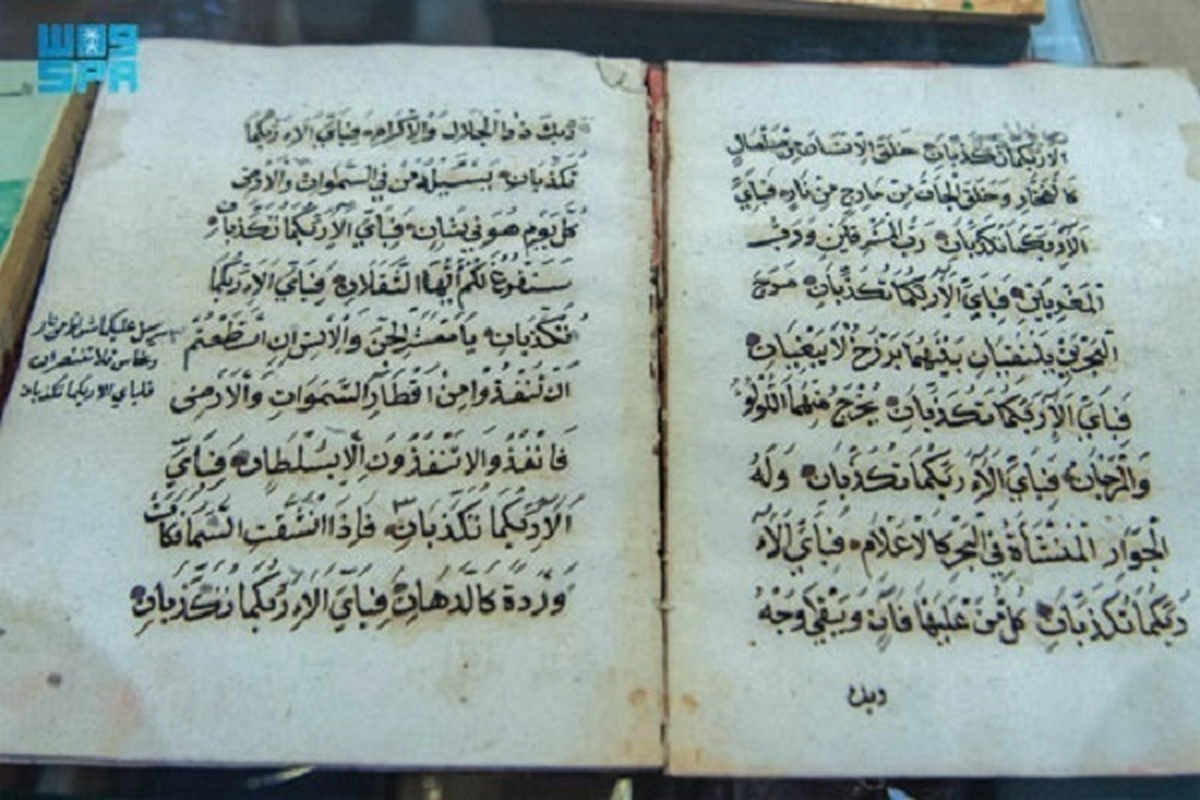 واس
SPA
الاء ربكما تكذبان خلق الانسان من صلصال
كالفخار وخلق الجان من مارج من نار فباي
الاء ربكما تكذبان رب المشرقين ورب
المغربين فباي الاء ربكما تكذبان مرج
البحرين يلتقيان بينهما برزخ لا يبغيان
فباي الاء ربكما تكذبان يخرج منهما اللولو
والمرجان فباي الاء ربكما تكذبان وله
الجوار المنشأة في البحر كالاعلام فباي الاء
ربكما تكذبان كل من عليها فان ويبقى وجه
ربك
ربك ذوا الجلال والاكرام فباي الاء ربكما
تكذبان يسئله من في السموات والارض
كل يوم هو في شان فباي الاء ربكما تكذبان
سنفرغ لكم ايها الثقلان فباي الاء ربكما
تكذبان يا معشر الجن والانس ان استطعتم
ان تنفذوا من اقطار السموات والارض
فانفذوا لا تنفذون الا بسلطان فباي
الاء ربكما تكذبان فاذا انشقت السما فكانت
وردة كالدهان فباي الاء ربكما تكذبان
يرسل عليكما شواظ من نار
ونحاس فلا تنتصران
فباي الاء ربكما تكذبان